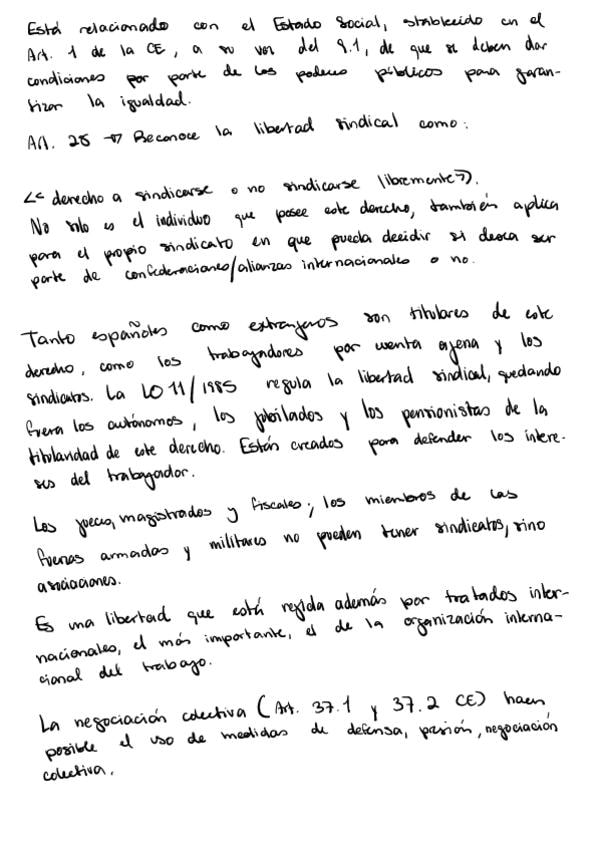 Está relacionado con el Estado Social, establecido en el
Art. 1 de la CE, a su vez del 9.1, de que se deben dar
condiciones por parte de los poderes públicos para garan-
tizar la igualdad.
Art. 28 → Reconoce la libertad sindical como:
<< derecho a sindicarse o no sindicarse libremente>>.
No solo es el individuo que posee este derecho, también aplica
para el propio sindicato en que pueda decidir si desea ser
parte de confederaciones/alianzas internacionales o no.
Tanto españoles como extranjeros son titulares de este
derecho, como los trabajadores por cuenta ajena y los
sindicatos. La LO 11/1985 regula la libertad sindical, quedando
fuera los autónomos, los jubilados y los pensionistas de la
titularidad de este derecho. Están creados para defender los intere-
ses del trabajador.
Los jueces, magistrados y fiscales; los miembros de las
fuerzas armadas y militares no pueden tener sindicatos, sino
asociaciones.
Es una libertad que está regida además por tratados inter-
nacionales, el más importante, el de la organización interna-
cional del trabajo.
La negociación colectiva (Art. 37.1 y 37.2 CE) hacen
posible el uso de medidas de defensa, presión, negociación
colectiva.